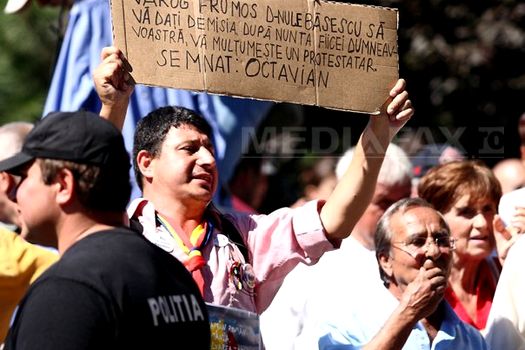 VĂ ROG FRUMOS D-NULE BĂSESCU SĂ
VĂ DAȚI DEMISIA DUPĂ NUNTA FIICEI DUMNEAVO
VOASTRĂ. VĂ MULȚUMEȘTE UN PROTESTATAR.
SEMNAT: OCTAVIAN
MEDIAFAX
POLITIA